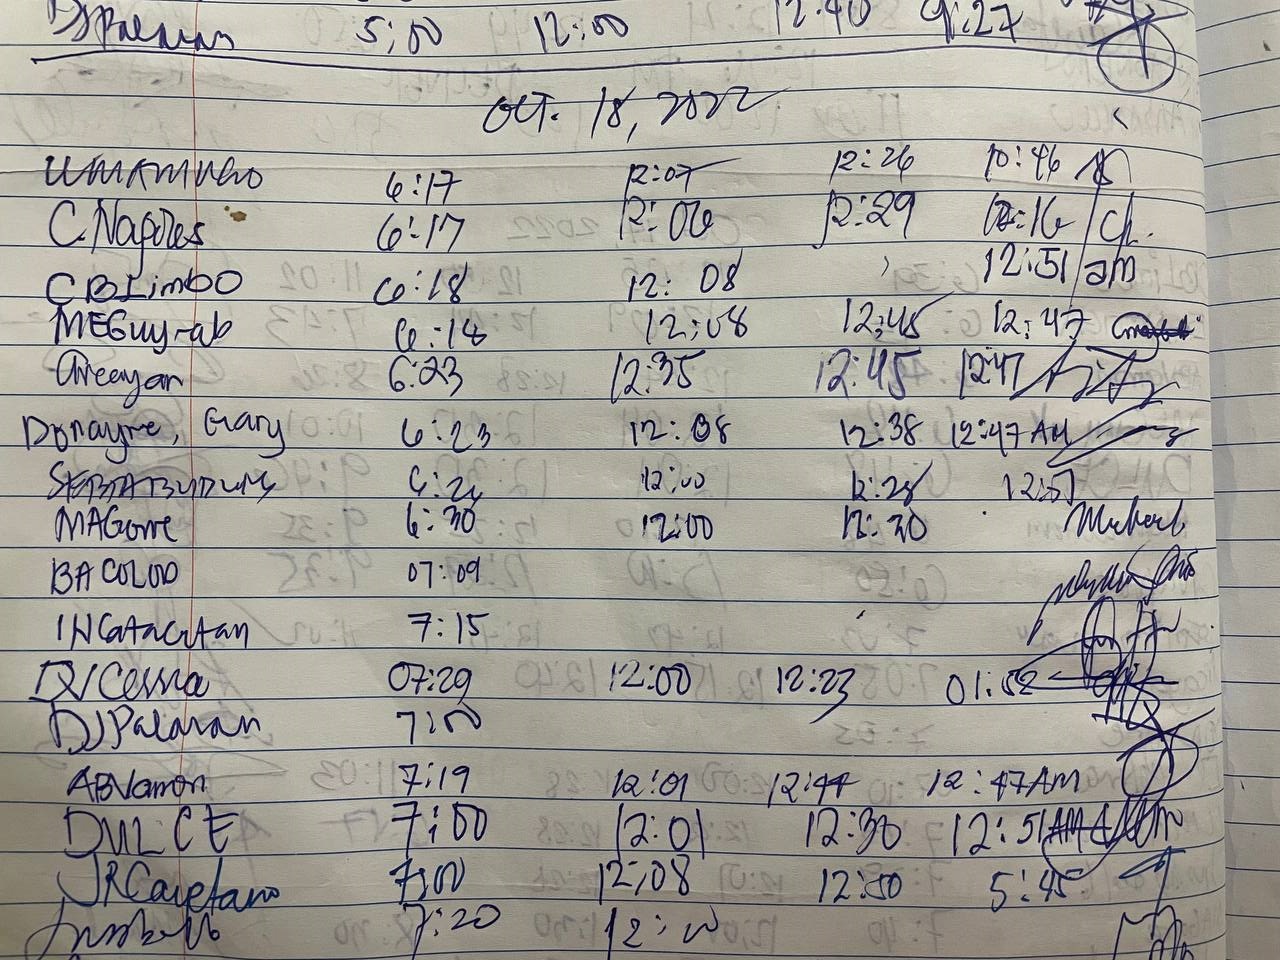 DJPalaran 5:00 12:00 12:40 9:27
Oct. 18, 2022
6:17 12:07 12:26 10:46
C.Nagores 6:17 12:06 12:29 10:16 ch.
CBLimbO 6:18 12:08 12:51 am
MEGuy-ab 6:18 12:08 12:45 12:47
6:23 12:35 12:45 12:47
Donayre, Gary 6:23 12:08 12:38 12:47 AM
6:24 12:00 12:28 12:51
MAGome 6:30 12:00 12:30 Micharl
BACOLOD 07:09
INGatacutan 7:15
07:29 12:00 12:23 01:52
DJPalaran 7:00
ABVamon 7:19 12:01 12:44 12:47AM
DULCE 7:00 12:01 12:30 12:51AM
JRCayetano 7:00 12:08 12:50 5:45
7:20 12:00